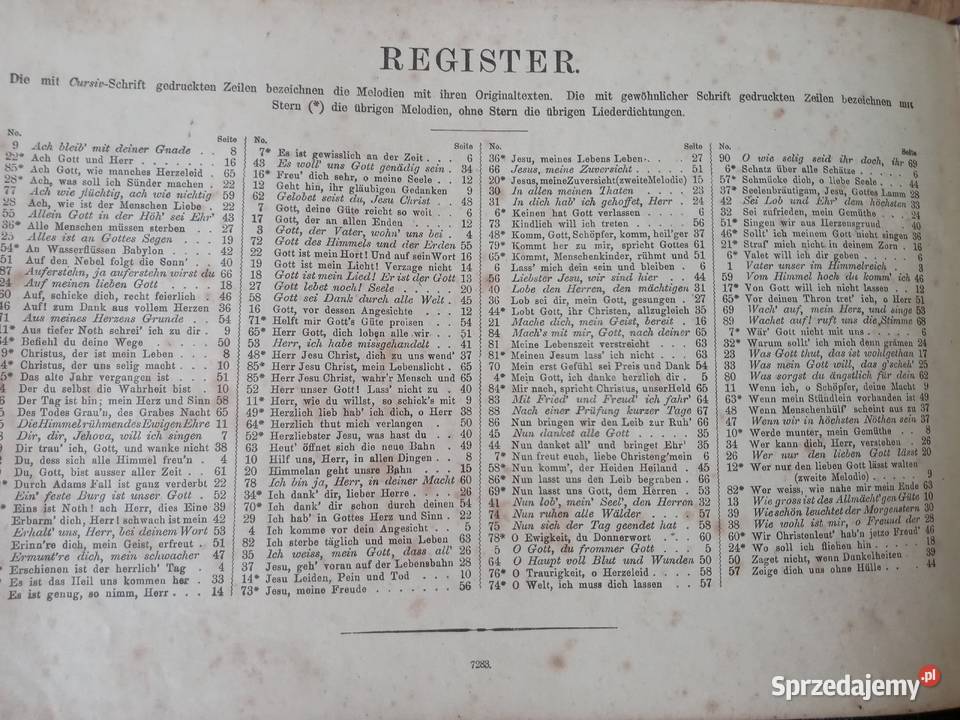 REGISTER.
Die mit Cursiv-Schrift gedruckten Zeilen bezeichnen die Melodien mit ihren Originaltexten. Die mit gewöhnlicher Schrift gedruckten Zeilen bezeichnen mit
Stern (*) die übrigen Melodien, ohne Stern die übrigen Liederdichtungen.
No. Seite
9 Ach bleib' mit deiner Gnade . . 8
22* Ach Gott und Herr . . . . . . . 16
85* Ach Gott, wie manches Herzeleid . 65
28* Ach, was soll ich Sünder machen . 22
77 Ach wie flüchtig, ach wie nichtig 59
28 Ach, wie ist der Menschen Liebe . 22
55 Allein Gott in der Höh' sei Ehr' 43
36* Alle Menschen müssen sterben . . 27
25 Alles ist an Gottes Segen . . . 19
54* An Wasserflüssen Babylon . . . 42
51 Auf den Nebel folgt die Sonn' . . 40
87 Auferstehn, ja auferstehn wirst du 66
24 Auf meinen lieben Gott . . . . 18
60 Auf, schicke dich, recht feierlich . 46
46 Auf! zum Dank aus vollem Herzen 36
71 Aus meines Herzens Grunde . . 54
11* Aus tiefer Noth schrei' ich zu dir . 9
64* Befiehl du deine Wege . . . . . 50
9* Christus, der ist mein Leben . . . 8
4* Christus, der uns selig macht . . . 10
5* Das alte Jahr vergangen ist . . . 51
Der du selbst die Wahrheit bist . . 10
Der Tag ist hin; mein Herz und Sinn 58
Des Todes Grau'n, des Grabes Nacht 65
Die Himmel rühmen des Ewigen Ehre 11
Dir, dir, Jehova, will ich singen 7
Dir trau' ich, Gott, und wanke nicht 38
Du, dess sich alle Himmel freu'n . 4
Du, Gott, bist ausser aller Zeit . . 61
Durch Adams Fall ist ganz verderbt 22
Ein' feste Burg ist unser Gott . 52
Eins ist Noth! ach Herr, dies Eine 39
Erbarm' dich, Herr! schwach ist mein 42
Erhalt' uns, Herr, bei deinem Wort 53
Erinn're dich, mein Geist, erfreut . 51
Ermuntre dich, mein schwacher 47
Erschienen ist der herrlich' Tag . 4
Es ist das Heil uns kommen her . . 33
Es ist genug, so nimm, Herr . . . 14
No. Seite
7* Es ist gewisslich an der Zeit . . . 6
43 Es woll' uns Gott genädig sein . 34
16* Freu' dich sehr, o meine Seele . . 12
12 Geht hin, ihr gläubigen Gedanken 9
62 Gelobet seist du, Jesu Christ . 48
7 Gott, deine Güte reicht so weit . 6
17 Gott, der an allen Enden . . . . 12
3 Gott, der Vater, wohn' uns bei . 4
72 Gott des Himmels und der Erden 55
22 Gott ist mein Hort! Und auf sein Wort 16
19 Gott ist mein Licht! Verzage nicht 14
18 Gott ist mein Lied! Er ist der Gott 13
27 Gott lebet noch! Seele . . . . . 20
58 Gott sei Dank durch alle Welt . 45
16 Gott, vor dessen Angesichte . . . 12
71* Helft mir Gott's Güte preisen . . 54
65* Herr Gott, dich loben alle wir . . 51
53 Herr, ich habe missgehandelt . . 41
48* Herr Jesu Christ, dich zu uns wend' 37
85* Herr Jesu Christ, mein Lebenslicht . 65
85* Herr Jesu Christ, wahr'r Mensch und 65
52 Herr unser Gott! Lass' nicht zu . 40
11* Herr, wie du willst, so schick's mit 9
49* Herzlich lieb hab' ich dich, o Herr 38
64* Herzlich thut mich verlangen . . 50
52* Herzliebster Jesu, was hast du . . 40
63 Heut' öffnet sich die neue Bahn . . 49
10 Hilf uns, Herr, in allen Dingen . . 8
20 Himmelan geht unsre Bahn . . . 15
78 Ich bin ja, Herr, in deiner Macht 60
34* Ich dank' dir, lieber Herre . . . 26
70* Ich dank' dir schon durch deinen 54
29 Ich hab' in Gottes Herz und Sinn . 22
4 Ich komme vor dein Angesicht . . 5
82 Ich sterbe täglich und mein Leben 63
35 Ich weiss, mein Gott, dass all' 26
37 Jesu, geh' voran auf der Lebensbahn 28
14* Jesu Leiden, Pein und Tod . . . 10
73* Jesu, meine Freude . . . . . . . 56
No. Seite
36* Jesu, meines Lebens Leben . . . 27
66 Jesus, meine Zuversicht . . . . 51
20* Jesus, meine Zuversicht (zweite Melodie) 15
30 In allen meinen Thaten . . . . 23
31 In dich hab' ich gehoffet, Herr . 24
6* Keinen hat Gott verlassen . . . . 6
73 Kindlich will ich treten . . . . 56
48* Komm, Gott Schöpfer, komm, heil'ger 37
79* Kommt her zu mir, spricht Gottes 61
65* Kommt, Menschenkinder, rühmt und 51
6 Lass' mich dein sein und bleiben . . 6
56 Liebster Jesu, wir sind hier . . . 44
40 Lobe den Herren, den mächtigen 31
36 Lob sei dir, mein Gott, gesungen . 27
44* Lobt Gott, ihr Christen, allzugleich 35
21 Mache dich, mein Geist, bereit . 16
84 Mach's mit mir, Gott, nach deiner 65
81 Meine Lebenszeit verstreicht . . . 63
81* Meinen Jesum lass' ich nicht . . . 63
70 Mein erst Gefühl sei Preis und Dank 54
4* Mein Gott, ich danke herzlich dir . 5
84* Mir nach, spricht Christus, unser Held 65
83 Mit Fried' und Freud' ich fahr' 64
88 Nach einer Prüfung kurzer Tage 67
86 Nun bringen wir den Leib zur Ruh' 66
45 Nun danket alle Gott . . . . . 35
44 Nun danket all' und bringet Ehr' 35
7* Nun freut euch, liebe Christeng'mein 6
58* Nun komm', der Heiden Heiland . 45
86* Nun lasst uns den Leib begraben . 66
69* Nun lasst uns Gott, dem Herren . 53
41 Nun lob', mein' Seel', den Herren 32
74 Nun ruhen alle Wälder . . . . 57
75 Nun sich der Tag geendet hat . . 58
78* O Ewigkeit, du Donnerwort . . . 60
5 O Gott, du frommer Gott . . . 5
64 O Haupt voll Blut und Wunden 50
76* O Traurigkeit, o Herzeleid . . . . 58
74* O Welt, ich muss dich lassen . . 57
No. Seite
90 O wie selig seid ihr doch, ihr 69
6* Schatz über alle Schätze . . . . 6
57* Schmücke dich, o liebe Seele . . . 44
37* Seelenbräutigam, Jesu, Gottes Lamm 28
42 Sei Lob und Ehr' dem höchsten 33
32 Sei zufrieden, mein Gemüthe . . . 24
51* Singen wir aus Herzensgrund . . 40
46* Sollt' ich meinem Gott nicht singen 36
21* Straf' mich nicht in deinem Zorn . 16
6* Valet will ich dir geben . . . . . 6
1 Vater unser im Himmelreich . . 3
59 Vom Himmel hoch da komm' ich 46
17* Von Gott will ich nicht lassen . . 12
65* Vor deinen Thron tret' ich, o Herr 51
69 Wach' auf, mein Herz, und singe 53
89 Wachet auf! ruft uns die Stimme 68
7* Wär' Gott nicht mit uns . . . . 6
32* Warum sollt' ich mich denn grämen 24
23 Was Gott thut, das ist wohlgethan 17
33 Was mein Gott will, das g'scheh' 25
80 Was sorgst du ängstlich für dein 62
11 Wenn ich, o Schöpfer, deine Macht 9
63* Wenn mein Stündlein vorhanden ist 49
48 Wenn Menschenhülf' scheint aus zu 37
47 Wenn wir in höchsten Nöthen sein 37
10* Werde munter, mein Gemüthe . . 8
34 Wer kann dich, Herr, verstehen . 26
26 Wer nur den lieben Gott lässt 20
12* Wer nur den lieben Gott lässt walten
(zweite Melodie) . . . . . . 9
82* Wer weiss, wie nahe mir mein Ende 63
13 Wie gross ist des Allmächt'gen Güte 10
39 Wie schön leuchtet der Morgenstern 30
38 Wie wohl ist mir, o Freund der 28
60* Wir Christenleut' hab'n jetzo Freud' 46
24* Wo soll ich fliehen hin . . . . . 18
50 Zaget nicht, wenn Dunkelheiten . 39
57 Zeige dich uns ohne Hülle . . . . 44
7283.
Sprzedajemy.pl